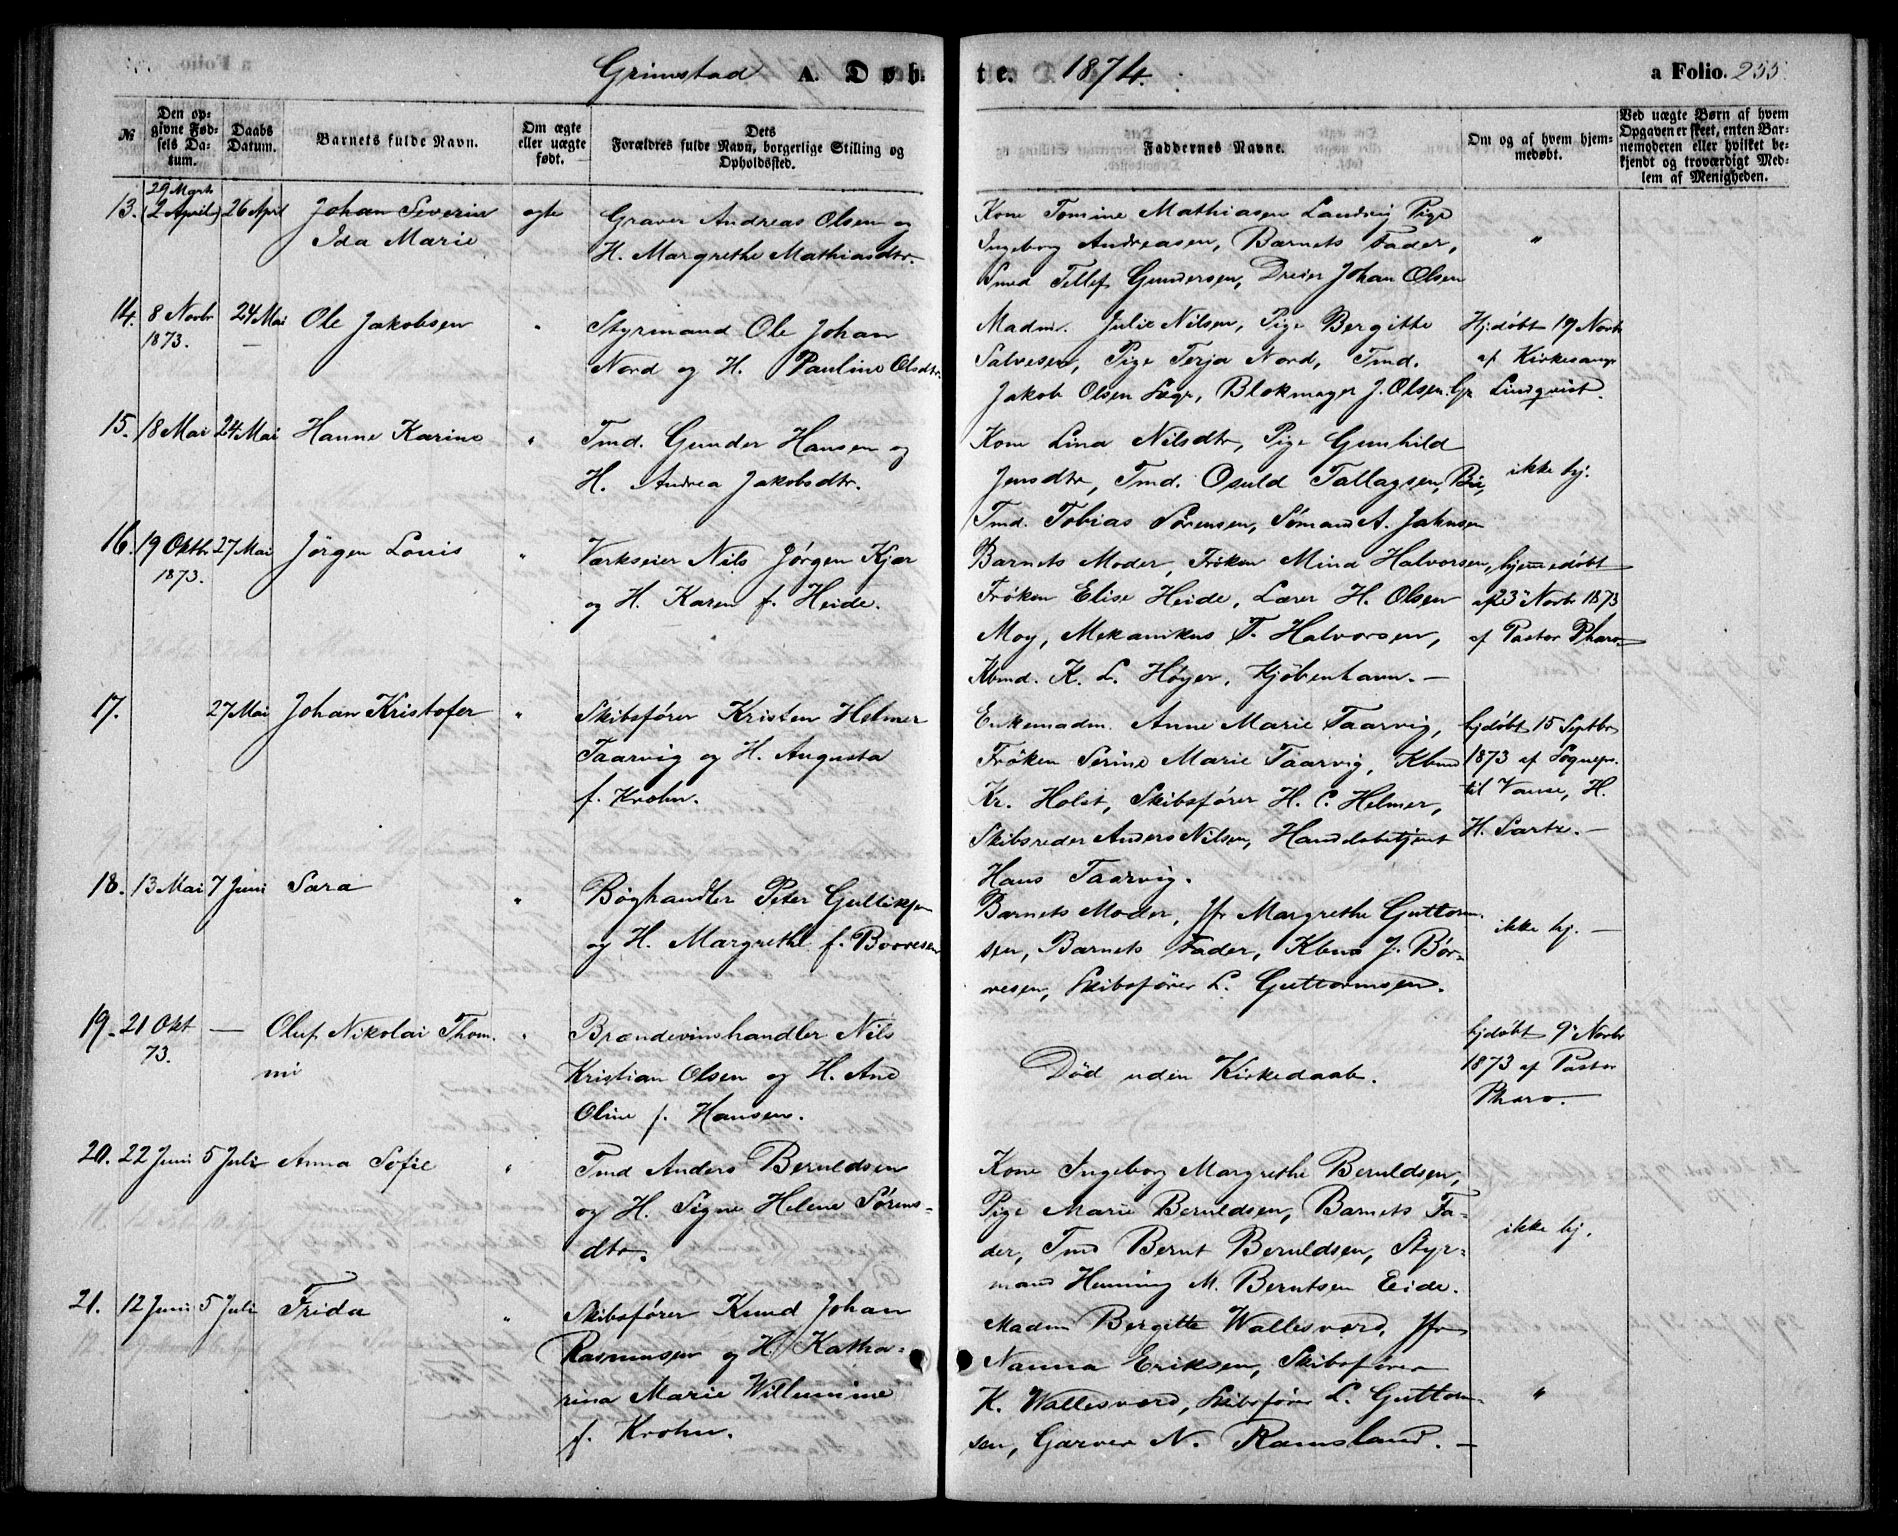 Grimstad A. Døbte. 1874. a Folio. 255.
№
Den opgivne Fødsels Datum.
Daabs Datum.
Barnets fulde Navn.
Om ægte eller uægte født.
Dets Forældres fulde Navn, borgerlige Stilling og Opholdssted.
Faddernes Navne.
Om og af hvem hjemmedøbt.
Ved uægte Børn af hvem Opgaven er skeet, enten Barnemoderen eller hvilket bekjendt og troværdigt Medlem af Menigheden.
13. 29 Marts (2 April) 26 April Johan Severin ægte Graver Andreas Olsen og
Ida Marie H. Margrethe Mathiasdtr.
Kone Tomine Mathiasen Landvig Pige
Ingeborg Andreasen, Barnets Fader, "
Smed Tellef Gundersen, Dreier Johan Olsen
14. 8 Novbr 24 Mai Ole Jakobsen " Styrmand Ole Johan
1873. Nord og H. Pauline Olsdtr.
Madm. Julie Nilsen, Pige Bergitte Hjdøbt 19 Novbr
Salvesen, Pige Terja Nord, Tmd. af Kirkesanger
Jakob Olsen Søgr, Blokmager J. Olsen. Gr. Lindqvist.
15. 18 Mai 24 Mai Hanne Karine " Tmd. Gunder Hansen og
H. Andrea Jakobsdtr.
Kone Lina Nilsdtr, Pige Gunhild
Jensdtr, Tmd. Osuld Tallagsen, Bie, ikke hj.
Tmd. Tobias Sørensen, Sømand A. Jahnsen
16. 19 Oktbr 27 Mai Jørgen Louis " Værkseier Nils Jørgen Kjær
1873. og H. Karen f. Heide.
Barnets Moder, Frøken Mina Halvorsen, hjemedøbt
Frøken Elise Heide, Lærer H. Olsen af 23 Novbr 1873
Moy, Mekanikus T. Halvorsen, af Pastor Pharo
Kbmd. K. L. Høyer, Kjöbenhavn. —
17. 27 Mai Johan Kristofer " Skibsfører Kristen Helmer
Taarvig og H. Augusta
f. Krohn.
Enkemadm. Anne Marie Taarvig, hjdøbt 15 Septbr
Frøken Serine Marie Taarvig, Kbmd 1873 af Sognepr.
Kr. Holst, Skibsfører H. C. Helmer, til Vanse, H.
Skibsreder Anders Nilsen, Handelsbetjent H. Sartz. —
Hans Taarvig.
18. 13 Mai 7 Juni Sara " Boghandler Peter Gulliksen
og H. Margrethe f. Boovesen
Barnets Moder, Jfr Margrethe Guttorm-
sen, Barnets Fader, Kbmd J. Bør- ikke hj. —
resen, Skibsfører L. Guttormsen.
19. 21 Okt — Oluf Nikolai Thom- " Brændevinshandler Nils
73. mi Kristian Olsen og H. Ane
Oline f. Hansen.
Død uden Kirkedaab.
hjdøbt 9 Novbr
1873 af Pastor
Pharo.
20. 22 Juni 5 Juli Anna Sofie " Tmd Anders Beruldsen
og H. Signe Helene Sørens-
dtr.
Kone Ingeborg Margrethe Beruldsen,
Pige Marie Beruldsen, Barnets Fa-
der, Tmd Bernt Beruldsen, Styr- ikke hj.
mand Henning M. Berntsen Eide.
21. 12 Juni 5 Juli Frida " Skibsfører Knud Johan
Rasmussen og H. Katha-
rina Marie Willumine
f. Krohn.
Madm Bergitte Wallesværd, Jfr
Nanna Eriksen, Skibsfører
K. Wallesværd, Skibsfører L. Guttorm- "
sen, Garver N. Ramsland. —